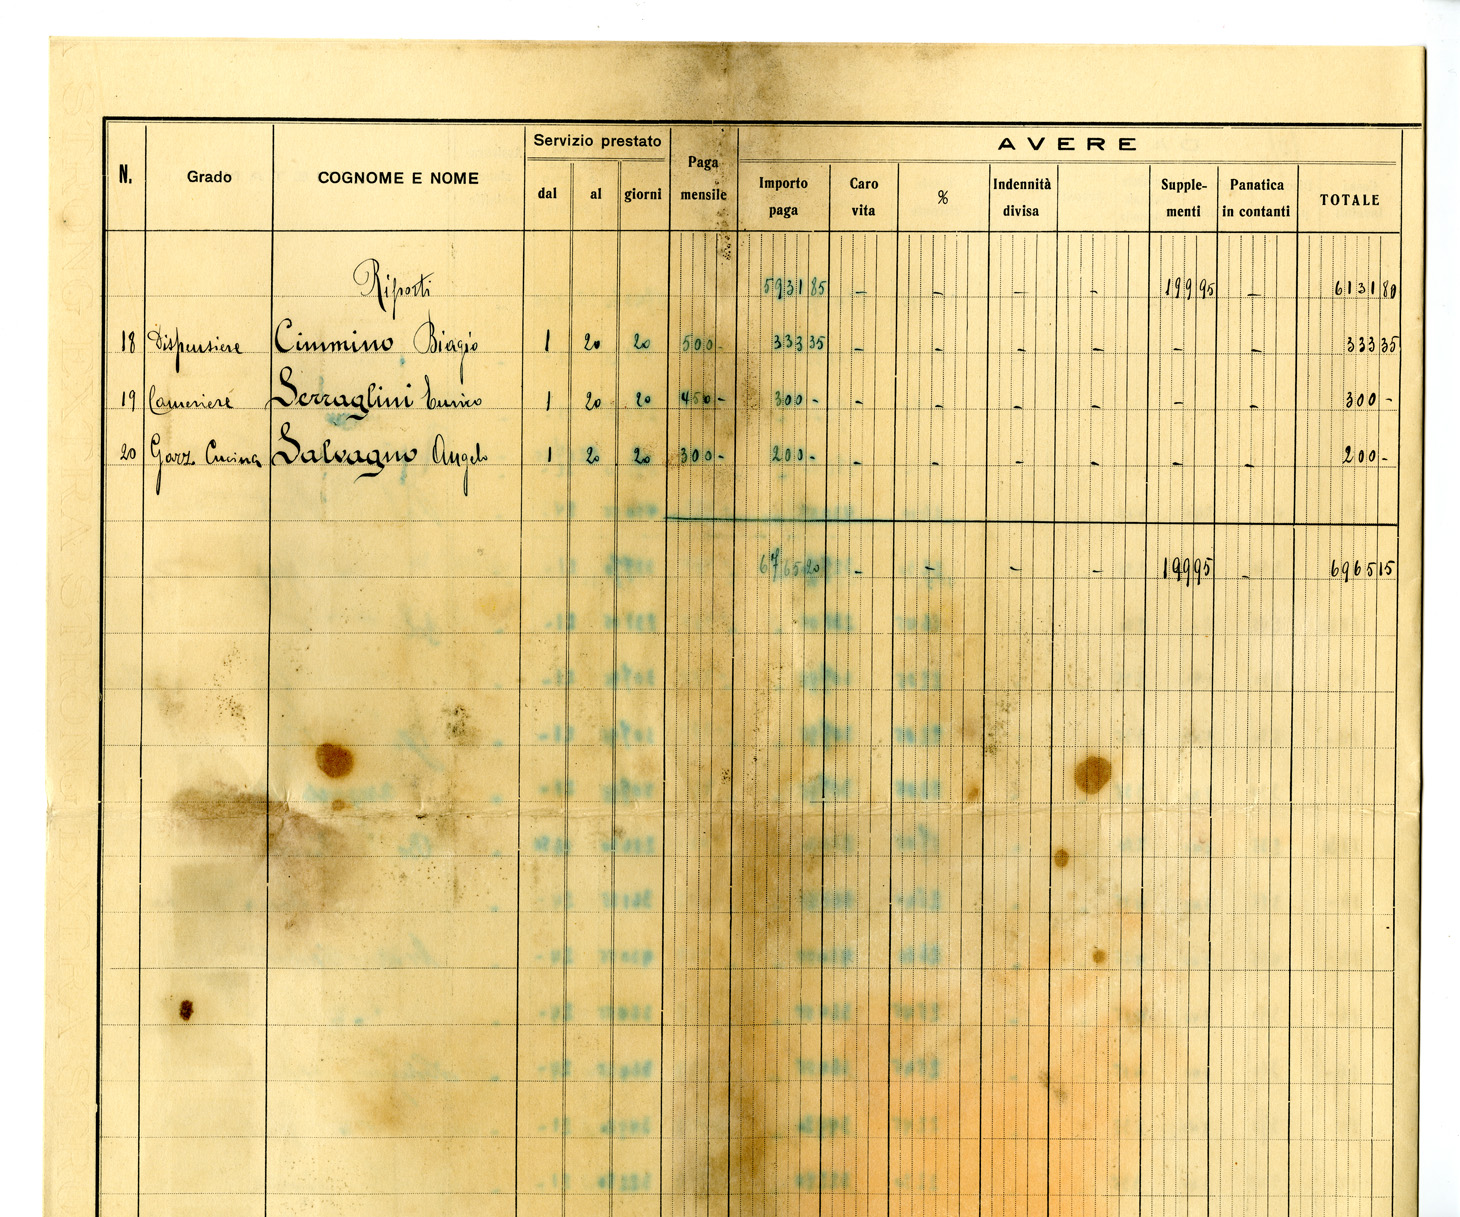 AVERE
N. Grado COGNOME E NOME Servizio prestato dal al giorni Paga mensile Importo paga Caro vita % Indennità divisa Supple- menti Panatica in contanti TOTALE
Riporti 5931 85 - - - - 199 95 - 6131 80
18 Dispensiere Cimmino Biagio 1 20 20 500 - 333 35 - - - - - - 333 35
19 Cameriere Serraglini Enrico 1 20 20 450 - 300 - - - - - - - 300 -
20 Garz. Cucina Salvagno Angelo 1 20 20 300 - 200 - - - - - - - 200 -
6765 20 - - - - 199 95 - 6965 15